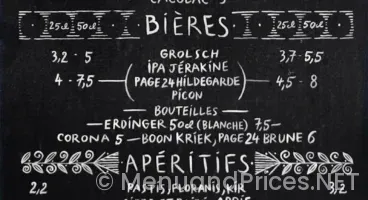 25cl 50cl BIÈRES 25cl 50cl
3,2 - 5 GROLSCH 3,7 - 5,5
IPA JÉRAKINE
4 - 7,5 PAGE 24 HILDEGARDE 4,5 - 8
PICON
BOUTEILLES
ERDINGER 50cl (BLANCHE) 7,5
CORONA 5 — BOON KRIEK, PAGE 24 BRUNE 6
APÉRITIFS
2,2 PASTIS, FLORANIS, KIR 3,2
© MenuandPrices.NET